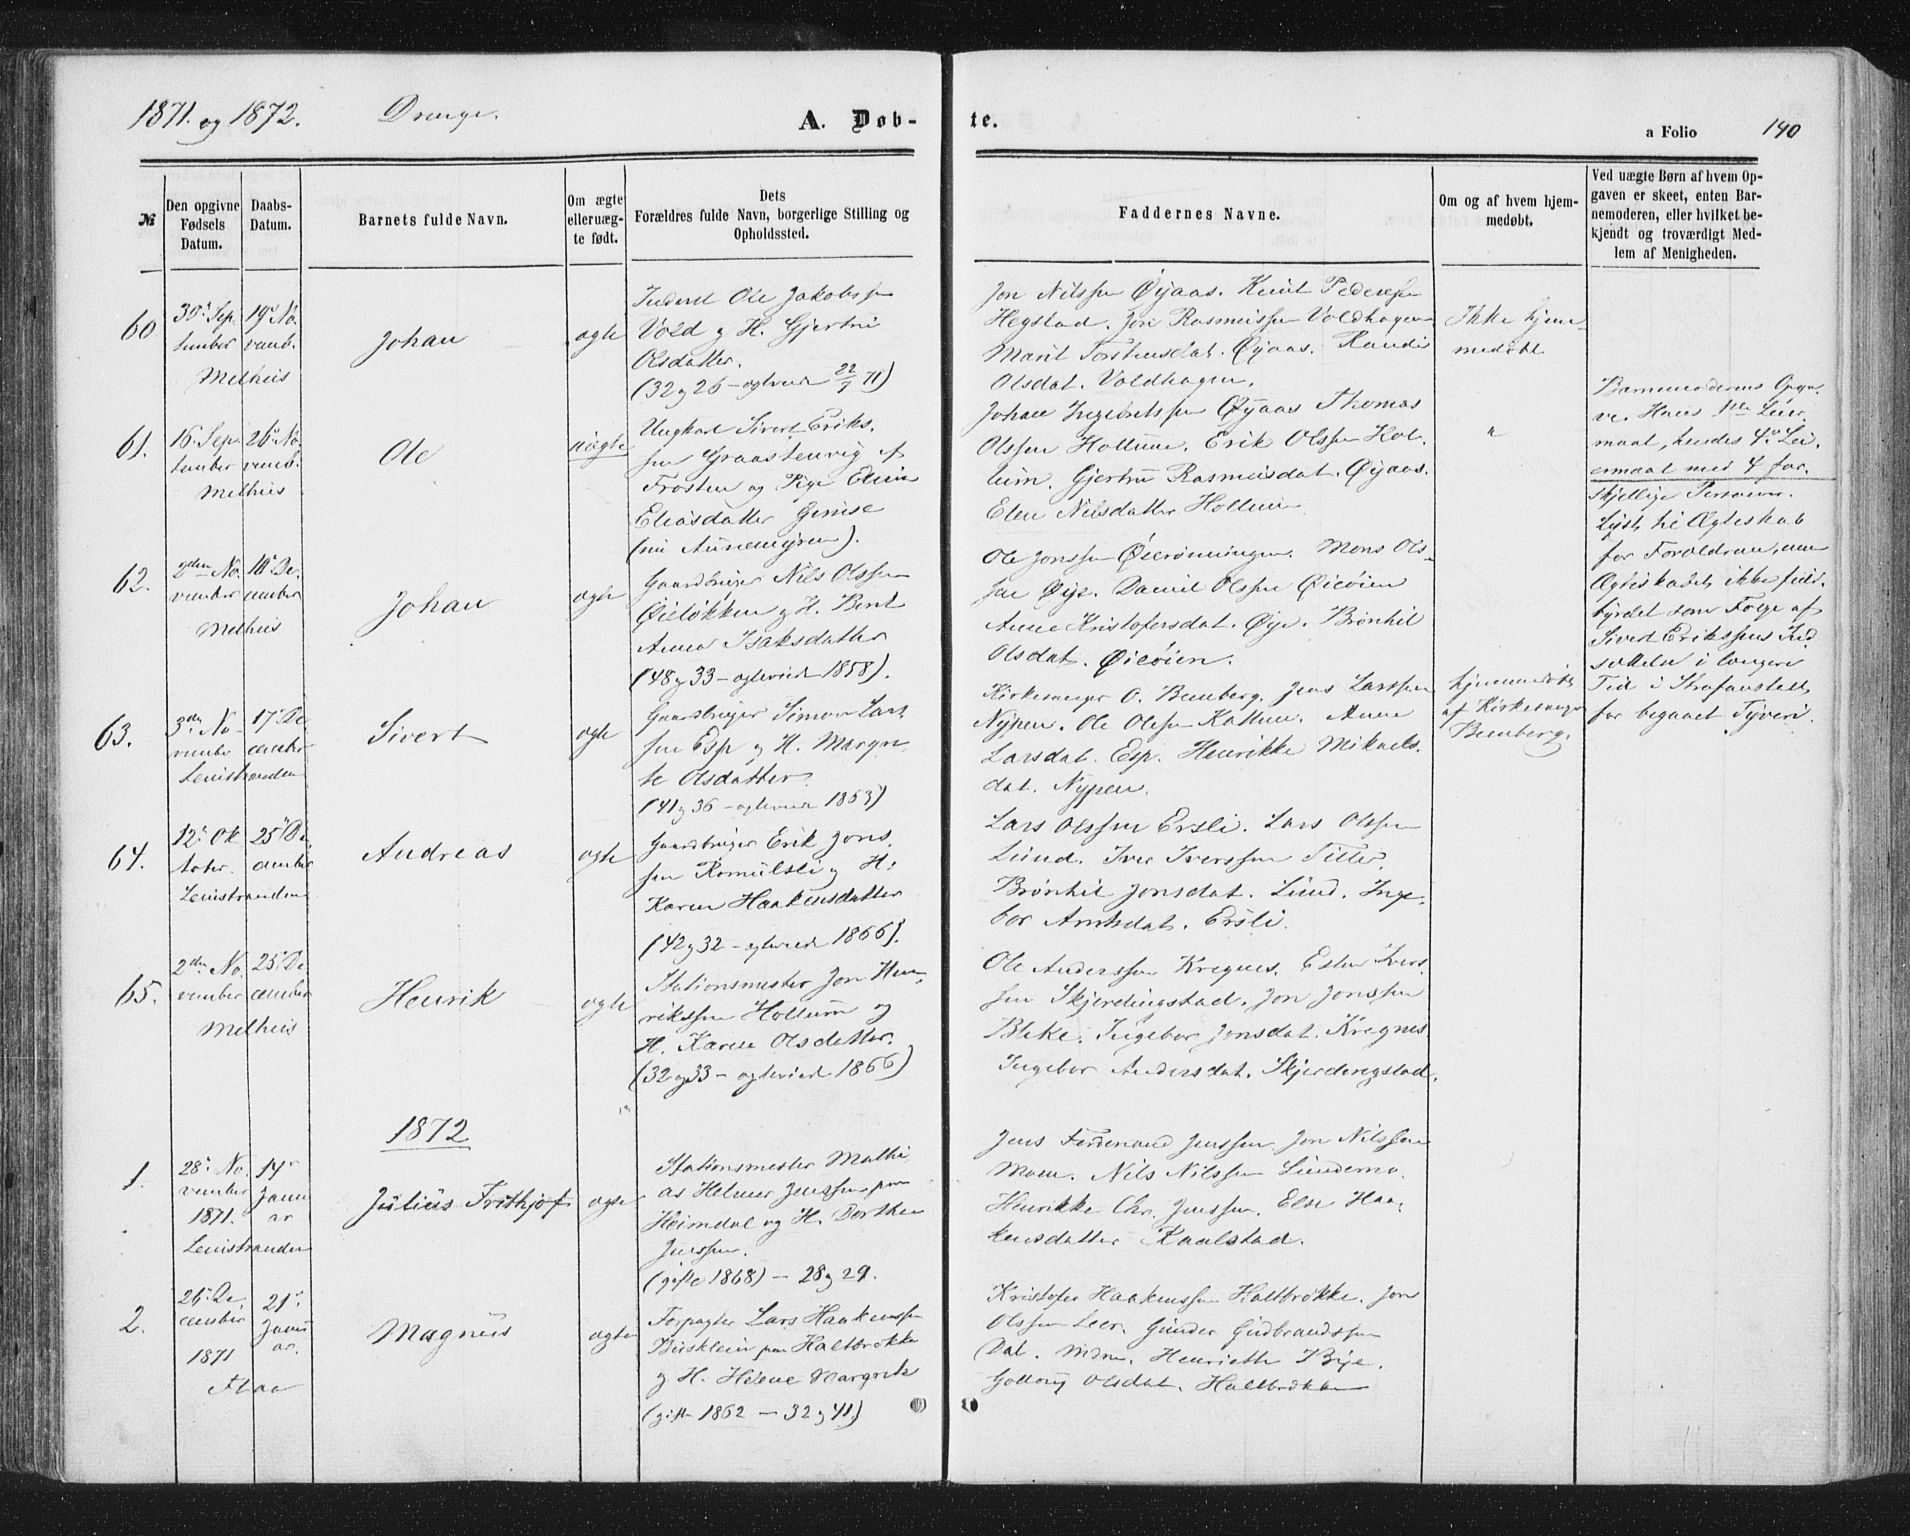 1871. og 1872. Drenge. A. Døb- te. a Folio 140
№
Den opgivne Fødsels Datum.
Daabs-Datum.
Barnets fulde Navn.
Om ægte eller uæg-te født.
Dets Forældres fulde Navn, borgerlige Stilling og Opholdssted.
Faddernes Navne.
Om og af hvem hjem-medøbt.
Ved uægte Børn af hvem Op-gaven er skeet, enten Bar-nemoderen, eller hvilket be-kjendt og troværdigt Med-lem af Menigheden.
60
30. Sep-
tember
Melhus
19. No-
vemb.
Johan
ægte
Inderst Ole Jakobssen
Vold og H. Gjertru
Olsdatter.
(32 og 26 – egteviede 22/7 71)
Jon Nilssen Øyaas. Knut Pederssen
Hegstad. Jon Rasmussen Voldhagen
Marit Torstensdat. Øyaas. Randi
Olsdat. Voldhagen.
Ikke hjem-
medøbt
61.
16. Sep-
tember
Melhus
26. No-
vemb.
Ole
uægte
Ungkarl Sivert Eriks-
sen Graastenvig af
Frosten og Pige Elen
Eliasdatter Gimse
(nu Aunemyren).
Johan Ingebretssen Øyaas Thomas
Olssen Hollum. Erik Olssen Hol-
lum. Gjertru Rasmusdat. Øyaas.
Elen Nilsdatter Hollum
"
Barnemoderens Opgi-
ve. Hans 1ste Leier-
maal, hendes 4. Lei-
ermaal med 4 for-
skjellige Personer.
Lyst til Ægteskab
for Forældrene, men
Ægteskabet ikke fuld-
byrdet som Følge af
Sivert Erikssens Ind-
sættelse i længere
Tid i Strafanstalt
for begaaet Tyveri.
62.
2den No-
vember
Melhus
10. De-
cember
Johan
ægte
Gaardbruger Nils Olssen
Øieløkken og H. Berit
Anna Isaksdatter
(48 og 33 – egteviede 1858).
Ole Jonssen Øierønningen. Mons Ols-
sen Øye. Daniel Olssen Øieøien
Anne Kristofersdat. Øye. Brønhil
Olsdat. Øieøien.
63.
3die No-
vember
Leinstranden
17. De-
cember
Sivert
ægte
Gaardbruger Simon Lars-
sen Esp og H. Margre-
te Olsdatter
(41 og 36 – egteviede 1853)
Kirkesanger O. Benberg. Jens Larssen
Nypen. Ole Olssen Kattem. Anne
Larsdat. Esp. Henrikke Mikaels-
dat. Nypen.
hjemmedøbt
af Kirkesanger
Benberg.
64.
12. Ok-
tober.
Leinstranden
25. De-
cember
Andreas
ægte
Gaardbruger Erik Jons-
sen Romulsli og H.
Karen Haakensdatter
(42 og 32 – egteviede 1866).
Lars Olssen Ersli. Lars Olssen
Lund. Iver Iverssen Tiller.
Brønhil Jonsdat. Lund. Inge-
bor Arntsdat. Ersli.
65.
2den No-
vember
Melhus
25. De-
cember
Henrik
ægte
Stationsmester Jon Hen-
rikssen Hollum og
H. Karen Olsdatter.
(32 og 33 – egteviede 1866)
Ole Anderssen Kregnes. Esten Ivers-
sen Skjerdingstad. Jon Jonssen
Bleke. Ingebor Jonsdat. Kregnes
Ingebor Andersdat. Skjerdingstad.
1872
1.
28. No-
vember
1871.
Leinstranden
14.
Janu-
ar
Julius Frithjof
ægte
Stationsmester Mathi-
as Helmer Jenssen paa
Heimdal og H. Dorthea
Jenssen.
(gifte 1868) – 28 og 29.
Jens Ferdenand Jenssen. Jon Nilssen
Moen. Nils Nilssen Lundemo.
Henrikke Chr. Jenssen. Else Haa-
kensdatter Kaalstad.
2.
26. De-
cember
1871
Flaa
21.
Janu-
ar.
Magnus
ægte
Forpagter Lars Haakenssen
Busklein paa Haltbrækken
og H. Helene Margrete
(gifte 1862 – 32 og 41)
Kristofer Haakenssen Haltbrække. Jon
Olssen Leer. Gunder Gudbrandssen
Dal. Mdm. Henriette Bye.
Gollaug Olsdat. Haltbrækken